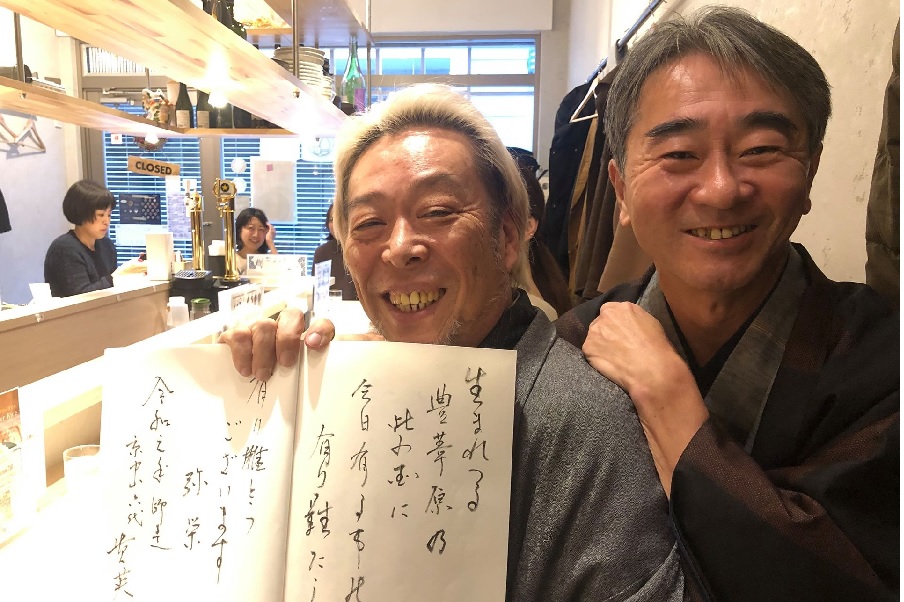 CLOSED
生まれつる
豊葦原乃
此の国に
今日有る事の
有り難たし
有り難とう
ございます
弥栄
令和元年師走